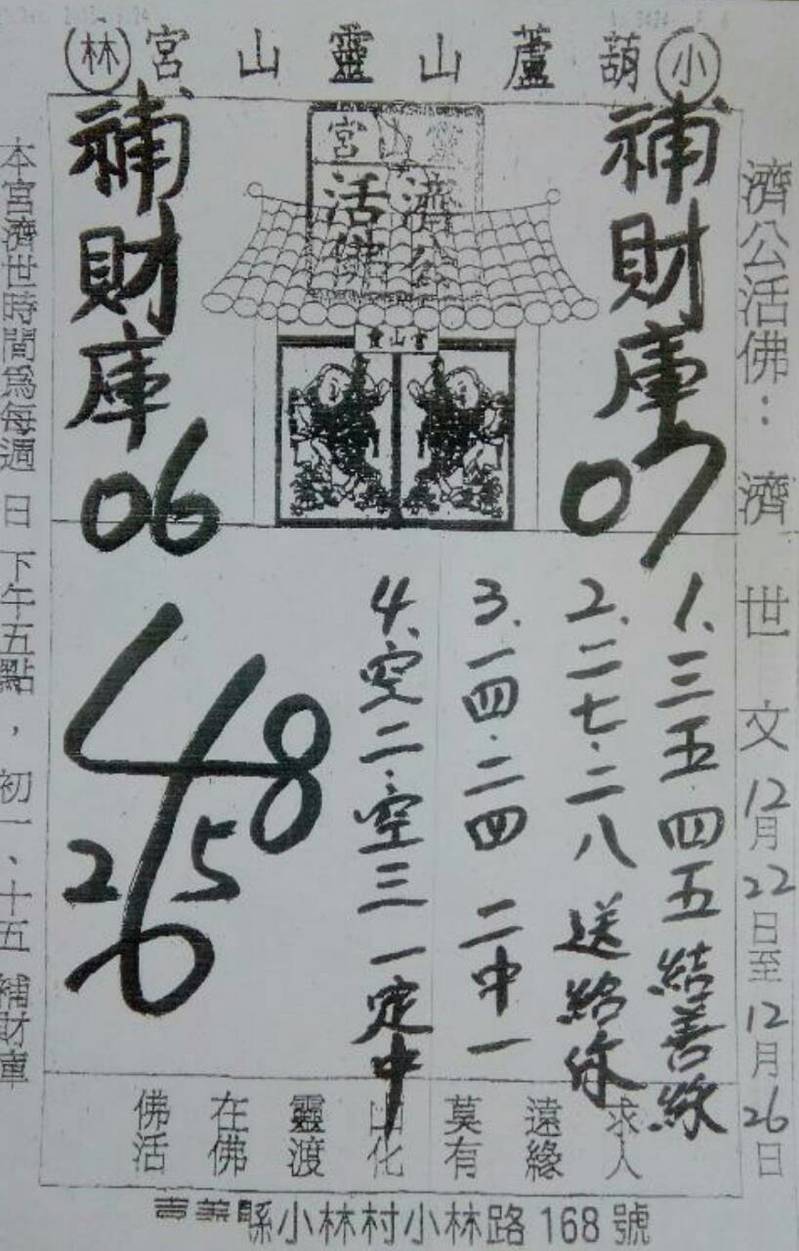 小葫蘆山靈山宮林
濟公活佛：濟世文12月22日至12月26日
補財庫
07
靈山宮
濟公
活佛
宮山靈
補財庫
06
1、三五 四五結善緣
2、二七·二八 送給你
3、一四·二四 二中一
4、空二·空三 一定中
4 8
2 5
6
求人
遠緣
莫有
山化
靈渡
在佛
佛活
本宮濟世時間為每週日下午五點，初一、十五補財庫
縣小林村小林路168號